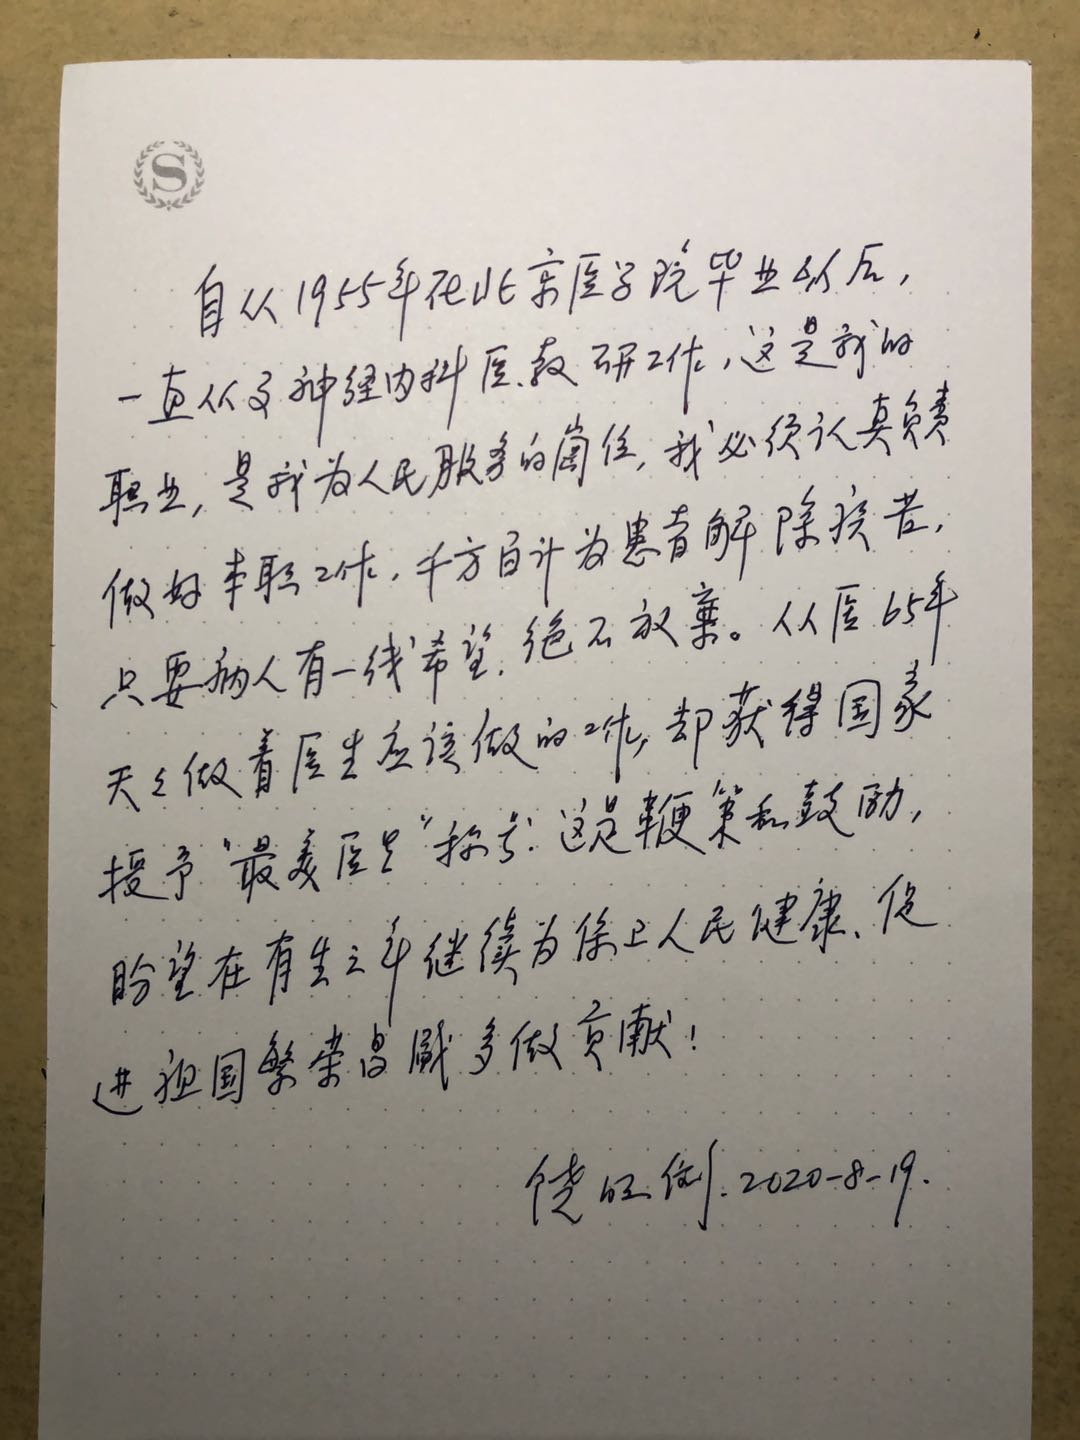 S
自从1955年在北京医学院毕业以后，
一直从事神经内科医、教研工作，这是我的
职业，是我为人民服务的岗位，我必须认真负责
做好本职工作，千方百计为患者解除疾苦，
只要病人有一线希望，绝不放弃。从医65年
天天做着医生应该做的工作，却获得国家
授予“最美医生”称号. 这是鞭策和鼓励，
盼望在有生之年继续为保卫人民健康、促
进祖国繁荣昌盛多做贡献！
饶旺 2020-8-19.